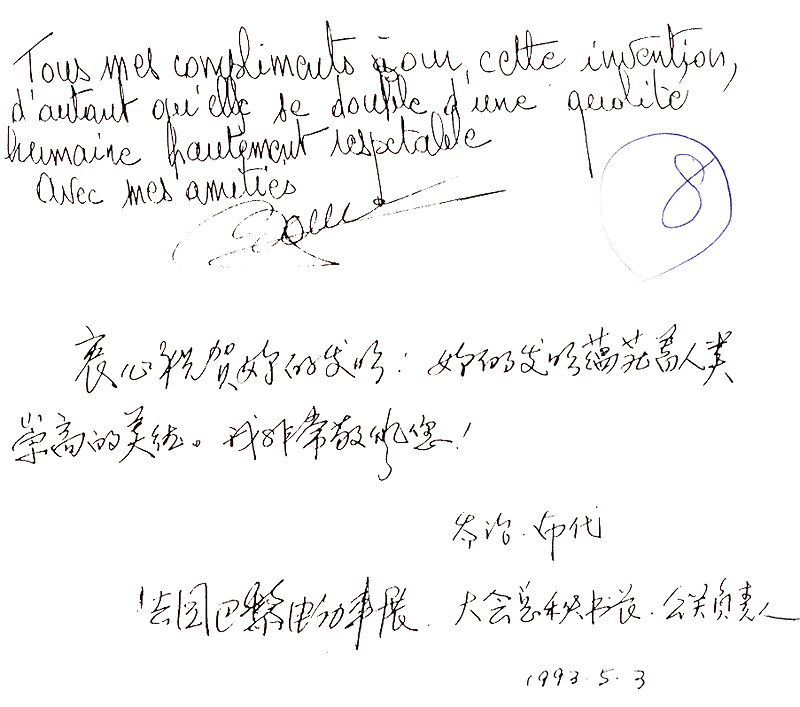 Tous mes compliments pour cette invention,
d'autant qu'elle se double d'une qualité
humaine hautement respectable
Avec mes amitiés
8
衷心祝贺妳的发明：妳的发明蕴藏着人类
崇高的美德。我非常敬佩您！
乔治.布代
法国巴黎电动车展.大会总秘书长.公关负责人
1993.5.3